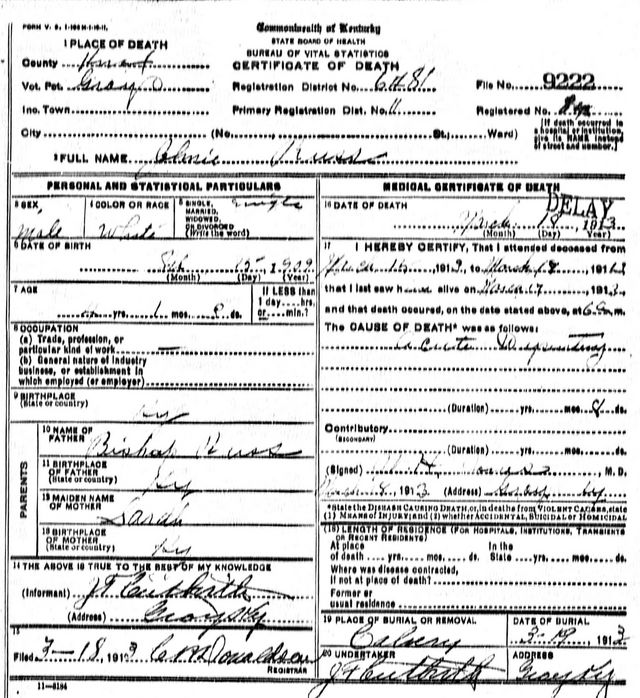 FORM V. S. 1-
Commonwealth of Kentucky
STATE BOARD OF HEALTH
BUREAU OF VITAL STATISTICS
CERTIFICATE OF DEATH
1 PLACE OF DEATH
County
Vot. Pct. Gray
Inc. Town
City (No. St.; Ward)
Registration District No. 6481
Primary Registration Dist. 11
File No. 9222
Registered No.
[If death occurred in a hospital or institution, give its NAME instead of street and number.]
2 FULL NAME
PERSONAL AND STATISTICAL PARTICULARS
3 SEX
male
4 COLOR OR RACE
White
5 SINGLE, MARRIED, WIDOWED, OR DIVORCED (Write the word)
Single
6 DATE OF BIRTH
Feb 15 1909
(Month) (Day) (Year)
7 AGE
yrs. 1 mos. ds.
If LESS than 1 day....hrs. or....min.?
8 OCCUPATION
(a) Trade, profession, or particular kind of work
(b) General nature of industry business, or establishment in which employed (or employer)
9 BIRTHPLACE
(State or country)
Ky
PARENTS
10 NAME OF FATHER
Bishop
11 BIRTHPLACE OF FATHER
(State or country)
Ky
12 MAIDEN NAME OF MOTHER
Sarah
13 BIRTHPLACE OF MOTHER
(State or country)
Ky
14 THE ABOVE IS TRUE TO THE BEST OF MY KNOWLEDGE
(Informant)
(Address) Grays Ky
15
Filed 3-18, 1913 C M Donaldson
REGISTRAR
11-8184
MEDICAL CERTIFICATE OF DEATH
16 DATE OF DEATH
DELAY
18, 1913
(Month) (Day) (Year)
17 I HEREBY CERTIFY, That I attended deceased from
, 1913, to March, 1913,
that I last saw h alive on March 17, 1913,
and that death occured, on the date stated above, at 6 m.
The CAUSE OF DEATH* was as follows:
acute Dysentery
(Duration) yrs. mos. 8 ds.
Contributory
(SECONDARY)
(Duration) yrs. mos. ds.
(Signed) M. D.
, 1913 (Address) Ky
*State the DISEASE CAUSING DEATH, or, in deaths from VIOLENT CAUSES, state (1) MEANS OF INJURY; and (2) whether ACCIDENTAL, SUICIDAL or HOMICIDAL
(18) LENGTH OF RESIDENCE (FOR HOSPITALS, INSTITUTIONS, TRANSIENTS OR RECENT RESIDENTS)
At place of death yrs. mos. ds. In the State yrs. mos. ds.
Where was disease contracted, if not at place of death?
Former or usual residence
19 PLACE OF BURIAL OR REMOVAL
Calvery
DATE OF BURIAL
3-19, 1913
20 UNDERTAKER
ADDRESS
Grays Ky